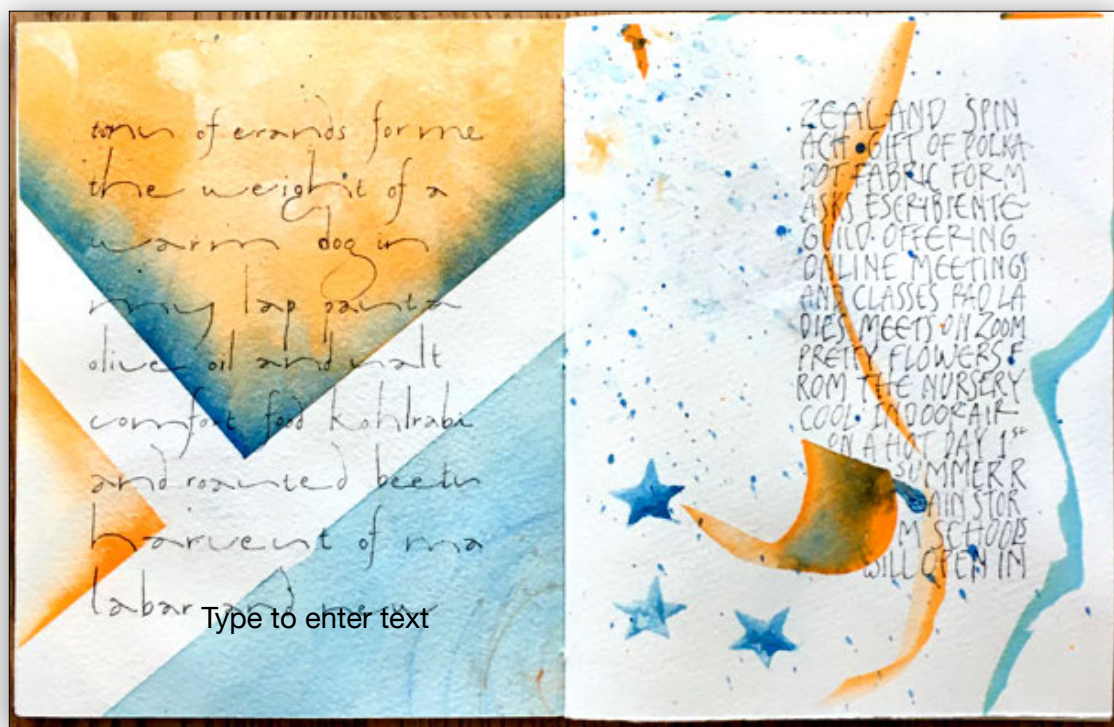 tony of erands for me
the weight of a
warm dog in
my lap pasta
olive oil and salt
comfort food kohlrabi
and roasted beets
harvest of ma
labar and new
Type to enter text
ZEALAND SPIN
ACH • GIFT OF POLKA
DOT FABRIC FORM
ASKS ESCRIBIENTE
GUILD OFFERING
ONLINE MEETINGS
AND CLASSES RAD LA
DIES MEETS ON ZOOM
PRETTY FLOWERS F
ROM THE NURSERY
COOL INDOOR AIR
ON A HOT DAY 1ST
SUMMER R
AIN STOR
M SCHOOLS
WILL OPEN IN